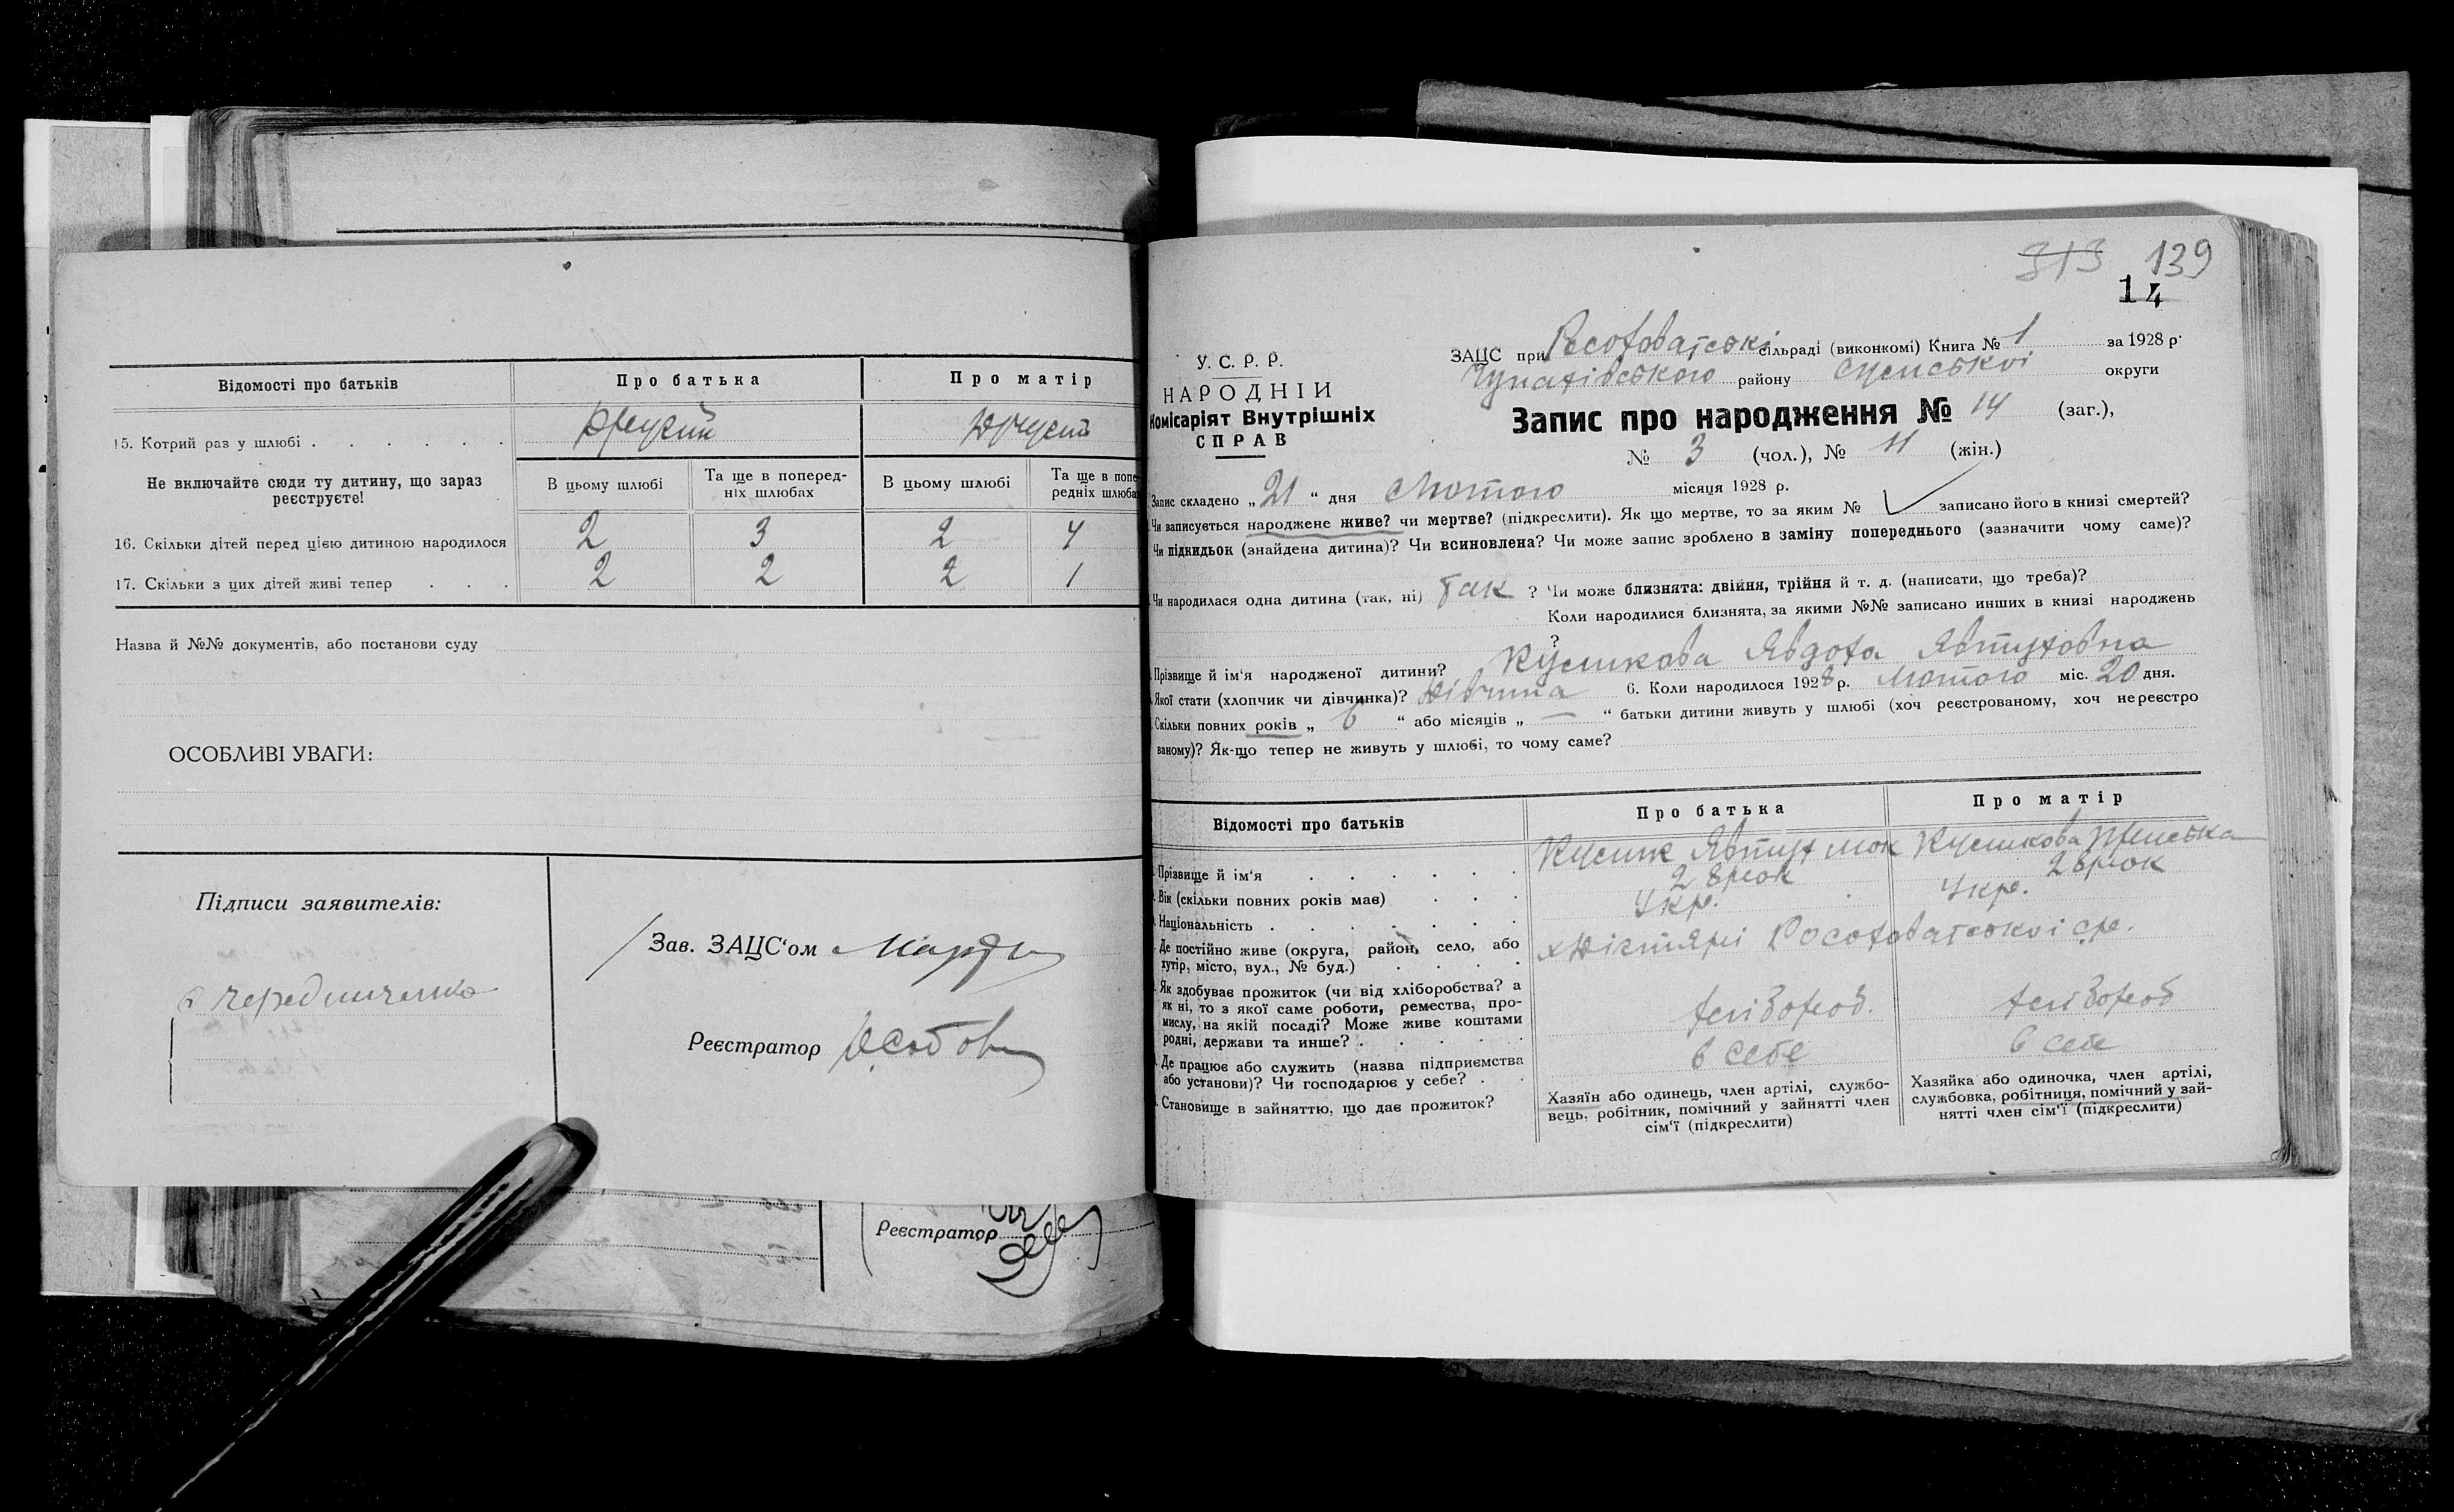 Відомості про батьків
Про батька
Про матір
15. Котрий раз у шлюбі . . . . . .
Другий
Другий
Не включайте сюди ту дитину, що зараз
реєструєте!
В цьому шлюбі
Та ще в поперед-
ніх шлюбах
В цьому шлюбі
Та ще в попе
редніх шлюба
16. Скільки дітей перед цією дитиною народилося
2 3 2 4
17. Скільки з цих дітей живі тепер . . .
2 2 2 1
Назва й №№ документів, або постанови суду
ОСОБЛИВІ УВАГИ:
Підписи заявителів:
Зав. ЗАЦС‘ом
Реєстратор
Реєстратор
313 139
14
У. С. Р. Р.
НАРОДНІЙ
Комісаріят Внутрішніх
СПРАВ
ЗАЦС при сільраді (виконкомі) Книга № 1 за 1928 р.
району Сумської округи
Запис про народження № 14 (заг.),
№ 3 (чол.), № 11 (жін.)
Запис складено „ 21 “ дня Лютого місяця 1928 р.
Чи записується народжене живе? чи мертве? (підкреслити). Як що мертве, то за яким № записано його в книзі смертей?
Чи підкидьок (знайдена дитина)? Чи всиновлена? Чи може запис зроблено в заміну попереднього (зазначити чому саме)?
Чи народилася одна дитина (так, ні) Так ? Чи може близнята: двійня, трійня й т. д. (написати, що треба)?
Коли народилися близнята, за якими №№ записано инших в книзі народжень
?
Прізвище й ім‘я народженої дитини? Явдоха Явтуховна
Якої стати (хлопчик чи дівчинка)? Дівчина 6. Коли народилося 1928 р. Лютого міс. 20 дня.
Скільки повних років „ 6 “ або місяців „ — “ батьки дитини живуть у шлюбі (хоч реєстрованому, хоч нереєстро
ваному)? Як-що тепер не живуть у шлюбі, то чому саме?
Відомості про батьків
Про батька
Про матір
Прізвище й ім‘я . . . . . .
Явтух
Вік (скільки повних років має) . . .
28 рок
28 рок
Національність . . . . . . .
Укр.
Укр.
Де постійно живе (округа, район, село, або
хутір, місто, вул., № буд.) . . . .
Як здобуває прожиток (чи від хліборобства? а
як ні, то з якої саме роботи, ремества, про-
мислу, на якій посаді? Може живе коштами
родні, держави та инше? . . . . .
хлібороб.
хлібороб
Де працює або служить (назва підприємства
або установи)? Чи господарює у себе? . .
в себе
в себе
Становище в зайняттю, що дає прожиток?
Хазяїн або одинець, член артілі, службо-
вець, робітник, помічний у зайнятті член
сім‘ї (підкреслити)
Хазяйка або одиночка, член артілі,
службовка, робітниця, помічний у зай-
нятті член сім‘ї (підкреслити)